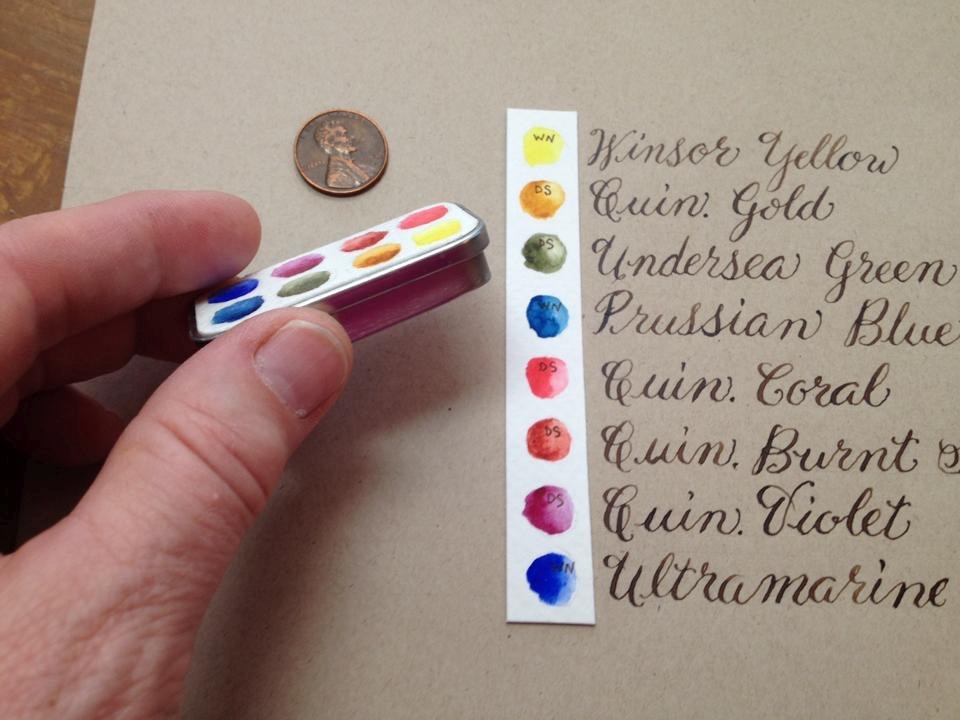 WN Winsor Yellow
DS Quin. Gold
DS Undersea Green
WN Prussian Blue
DS Quin. Coral
DS Quin. Burnt
DS Quin. Violet
WN Ultramarine